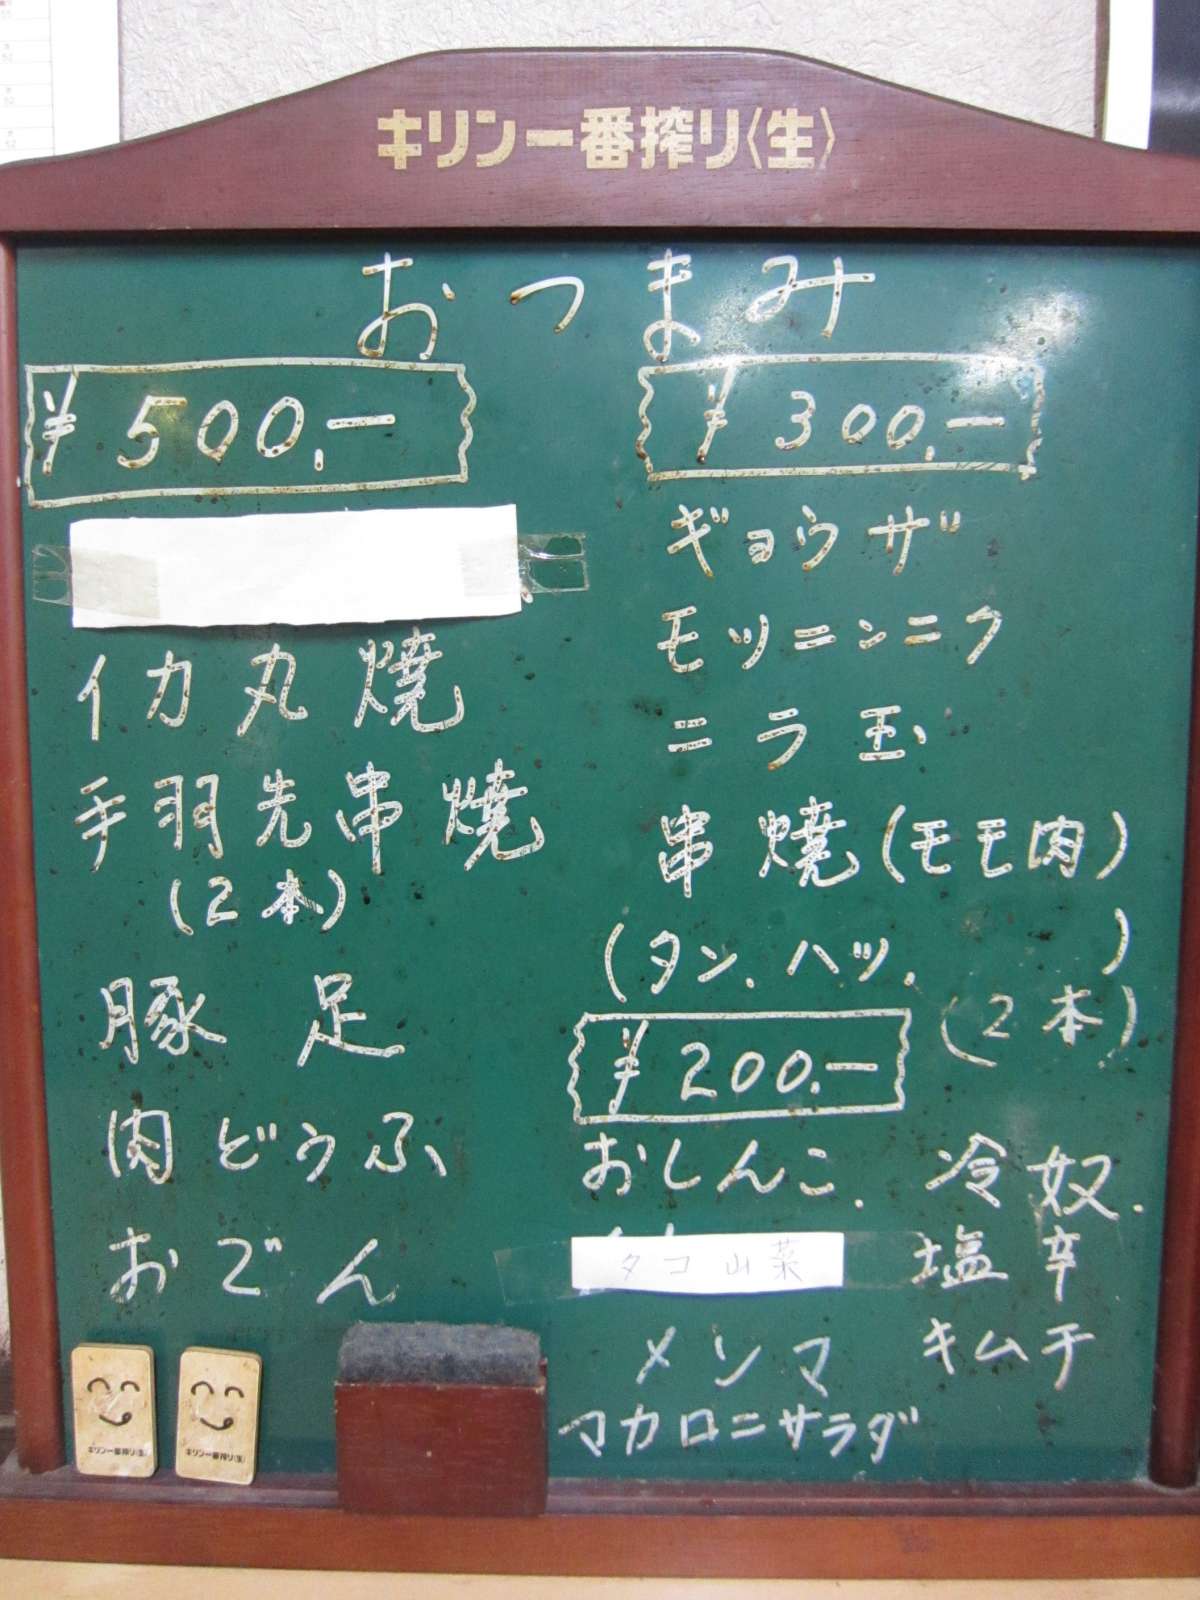 キリン一番搾り〈生〉
おつまみ
¥500.-
イカ丸焼
手羽先串焼
(2本)
豚足
肉どうふ
おでん
¥300.-
ギョウザ
モツニンニク
ニラ玉
串焼(モモ肉)
(タン、ハツ、)
(2本)
¥200.-
おしんこ、冷奴、
タコ山菜 塩辛
メンマ キムチ
マカロニサラダ
キリン一番搾り〈生〉
キリン一番搾り〈生〉